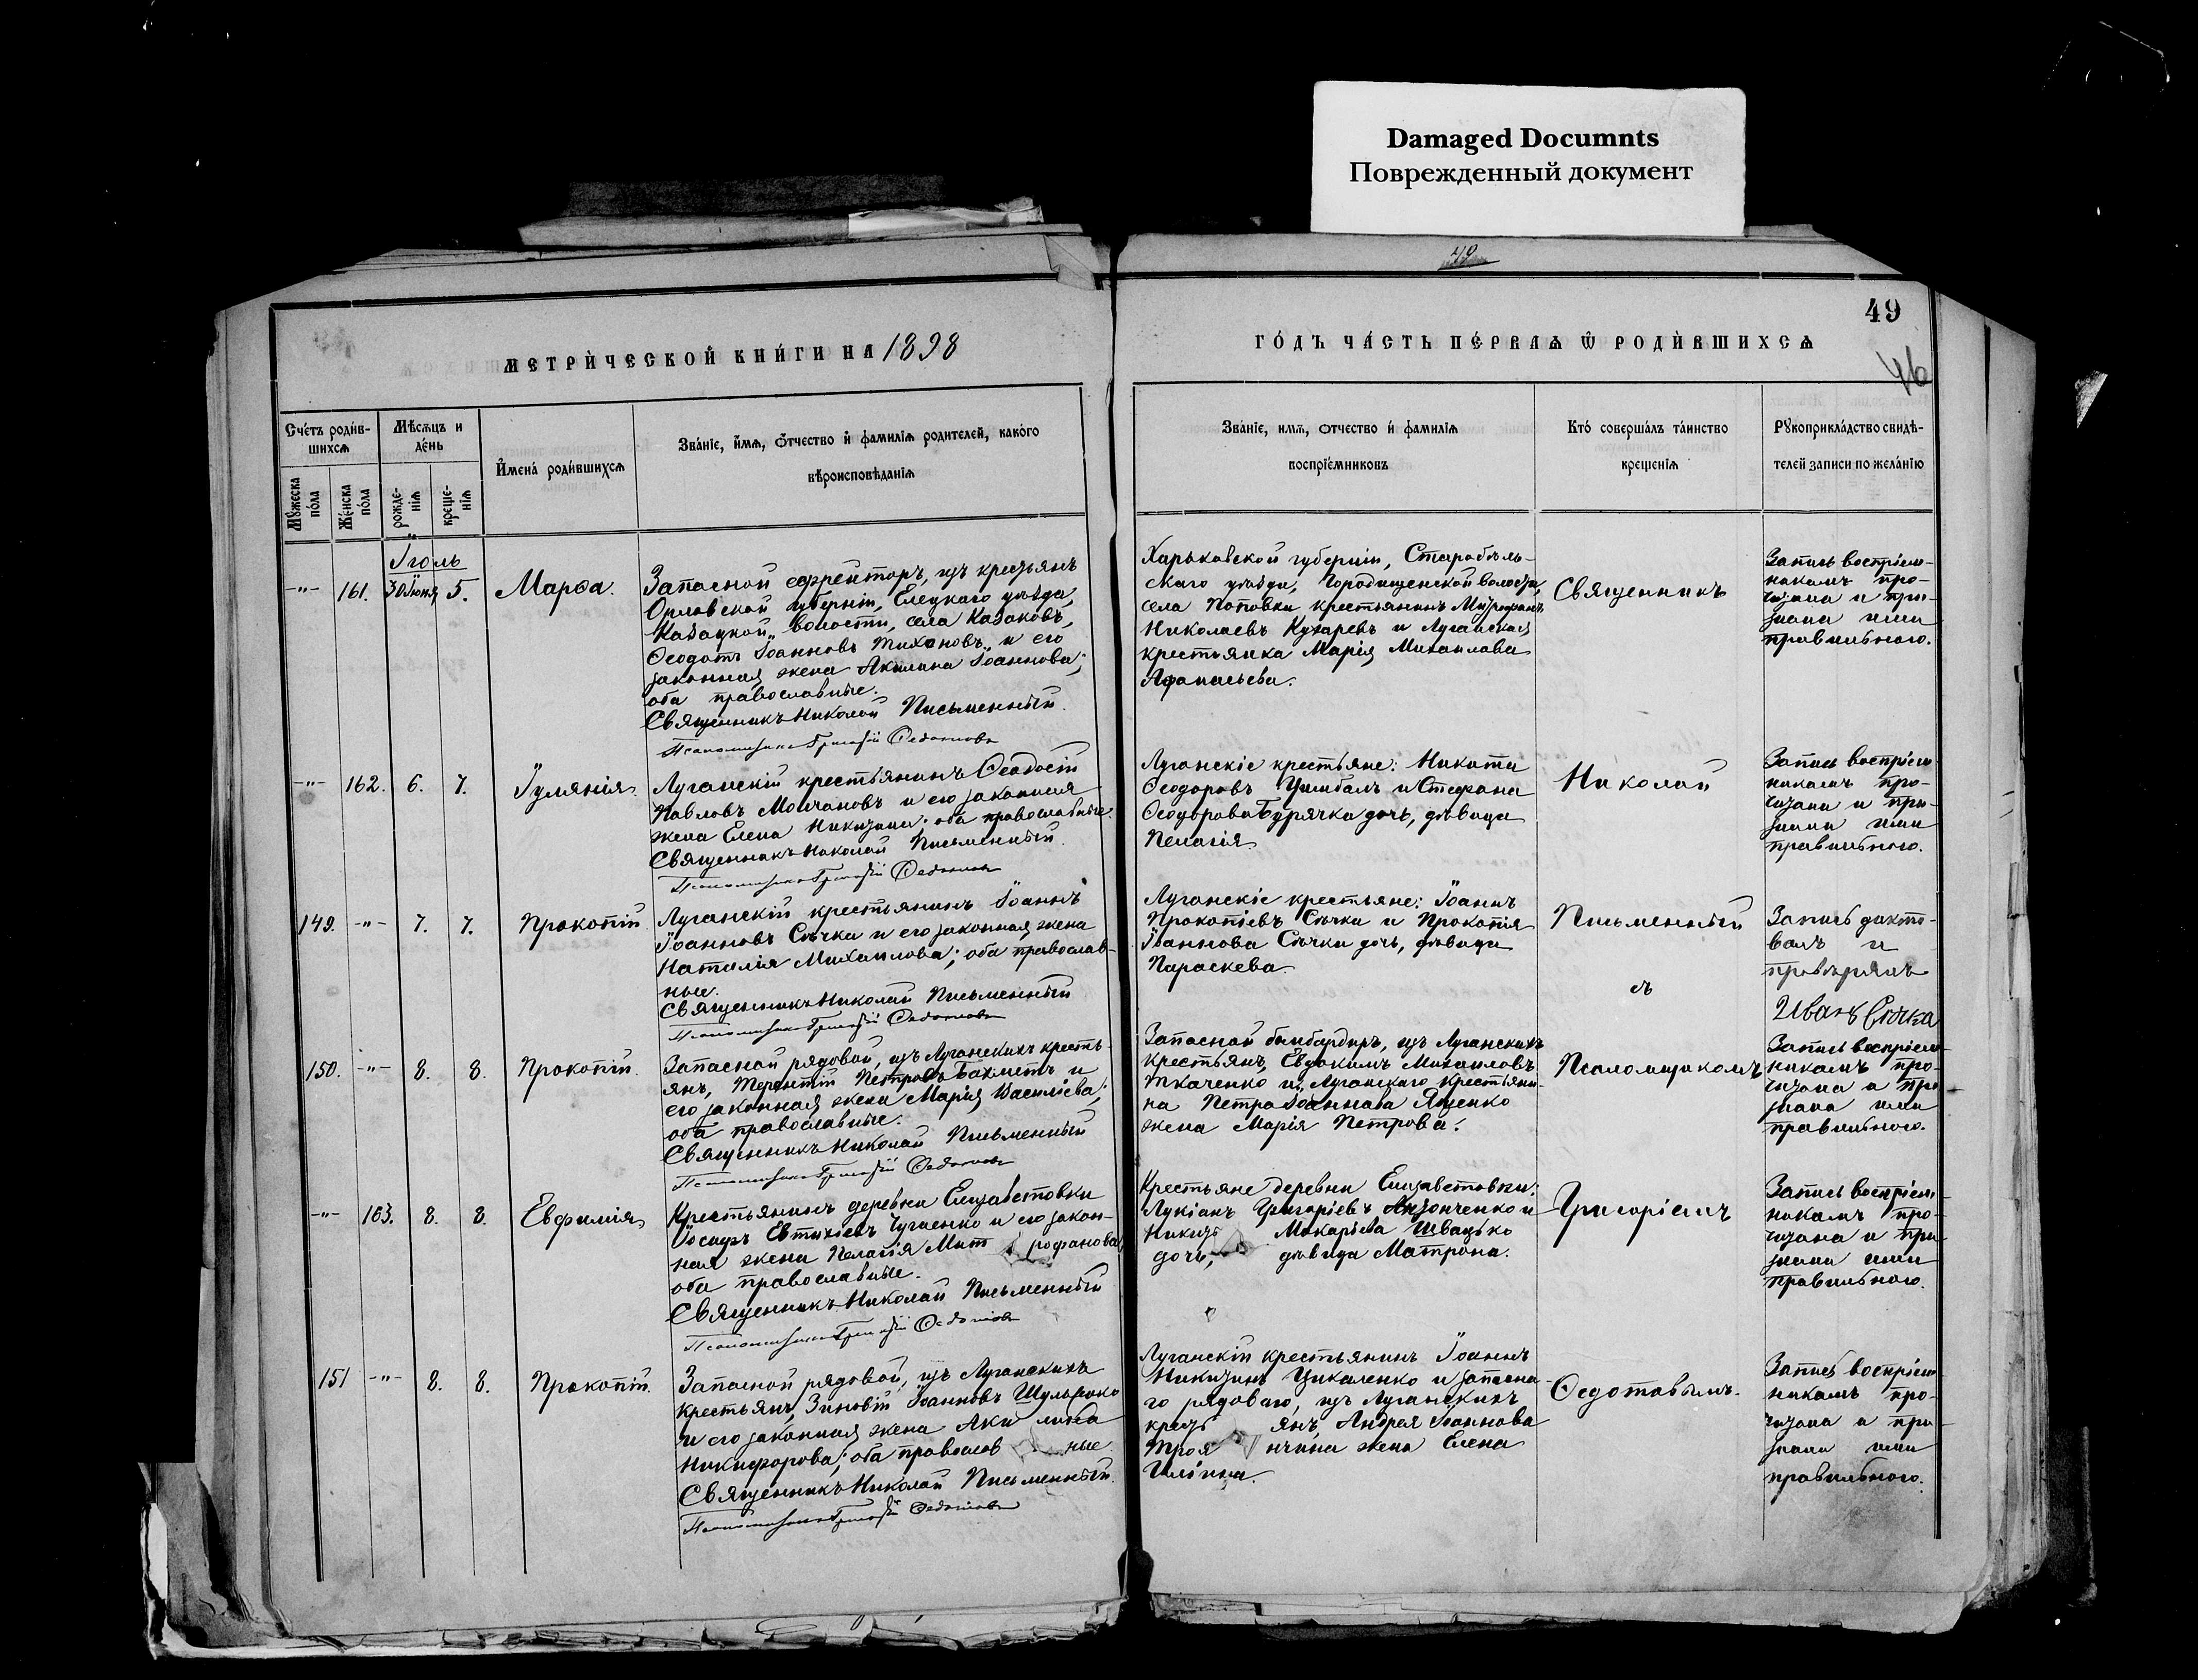 Damaged Documnts
Поврежденный документ
49
46
МЕТРИ́ЧЕСКОЙ КНИ́ГИ НА 1898
ГО́ДЪ ЧА́СТЬ ПЕ́РВАѦ Ѡ РОДИ́ВШИХСѦ
Сче́тъ роди́в-
шихсѧ
Мѣсѧцъ и
де́нь
Мꙋжеска
по́ла
Же́нска
по́ла
рожде-
нїѧ
креще-
нїѧ
И҆мена̀ роди́вшихсѧ
Зва́нїе, и҆́мѧ, ѻ҆́тчество и҆ фамилїѧ родителей, како́го
вѣроисповѣданїѧ
Зва́нїе, имѧ, ѻтчество и҆ фамилїѧ
воспрїе́мниковъ
Кто̀ соверша́лъ та́инство
креще́нїѧ
Рꙋкоприкла́дство свидѣ-
телей записи по жела́нїю
Іюль
-"- 161. 30 Іюня 5. Марѳа.
Запасной ефрейторъ, изъ крестьянъ
Орловской губерніи, Елецкаго уѣзда,
Казацкой волости, села Казаковъ,
Ѳеодотъ Іоанновъ Тихоновъ и его
законная жена Акилина Іоаннова;
оба православные.
Священникъ Николай Письменный.
Псаломщикъ Григорій Ѳедотовъ
Харьковской губерніи, Старобѣль-
скаго уѣзда, Городищенской волости,
села Поповки крестьянинъ Митрофанъ
Николаевъ Кухаревъ и Луганская
крестьянка Марія Михаилова
Афанасьева.
Священникъ
Запись воспріем-
никамъ про-
читана и при-
знана ими
правильною.
-"- 162. 6. 7. Іуліанія.
Луганскій крестьянинъ Ѳеодосій
Павловъ Молчановъ и его законная
жена Елена Никитина; оба православные.
Священникъ Николай Письменный.
Псаломщикъ Григорій Ѳедотовъ
Луганскіе крестьяне: Никита
Ѳеодоровъ Цымбалъ и Стефана
Ѳеодорова Бурячка дочь, дѣвица
Пелагія.
Николай
Запись воспріем-
никамъ про-
читана и при-
знана ими
правильною.
149. -"- 7. 7. Прокопій.
Луганскій крестьянинъ Іоаннъ
Іоанновъ Сѣчка и его законная жена
Наталія Михаилова; оба православ-
ные.
Священникъ Николай Письменный
Псаломщикъ Григорій Ѳедотовъ
Луганскіе крестьяне: Іоаннъ
Прокопіевъ Сѣчка и Прокопія
Іоаннова Сѣчки дочь, дѣвица
Параскева.
Письменный
съ
Запись дикто-
валъ и
провѣрялъ
Иванъ Сѣчка
150. -"- 8. 8. Прокопій.
Запасной рядовой, изъ Луганскихъ кресть-
янъ, Терентій Петровъ Бахметъ и
его законная жена Марія Василіева;
оба православные.
Священникъ Николай Письменный
Псаломщикъ Григорій Ѳедотовъ
Запасной бомбардиръ, изъ Луганскихъ
крестьянъ, Евдокимъ Михаиловъ
Ткаченко и Луганскаго крестьяни-
на Петра Іоаннова Яценко
жена Марія Петрова.
Псаломщикомъ
Запись воспріем-
никамъ про-
читана и при
знана ими
правильною.
-"- 163. 8. 8. Евфимія
Крестьянинъ деревни Елизаветовки
Іосифъ Евтихіевъ Чугаенко и его закон-
ная жена Пелагія Митрофанова,
оба православные.
Священникъ Николай Письменный
Псаломщикъ Григорій Ѳедотовъ
Крестьяне деревни Елизаветовки:
Лукіанъ Григоріевъ и
Макарьева Швацько
дочь, дѣвица Матрона.
Григоріемъ
Запись воспріем-
никамъ про-
читана и при-
знана ими
правильною.
151 -"- 8. 8. Прокопій.
Запасной рядовой, изъ Луганскихъ
крестьянъ, Зиновій Іоанновъ
и его законная жена Акилина
Никифорова; оба православные.
Священникъ Николай Письменный.
Псаломщикъ Григорій Ѳедотовъ
Луганскій крестьянинъ Іоаннъ
Никитинъ Цикаленко и запасна-
го рядоваго, изъ Луганскихъ
крестьянъ, Андрея Іоаннова
Троянчина жена Елена
Ильина.
Ѳедотовымъ.
Запись воспріем
никамъ про-
читана и при
знана ими
правильною.